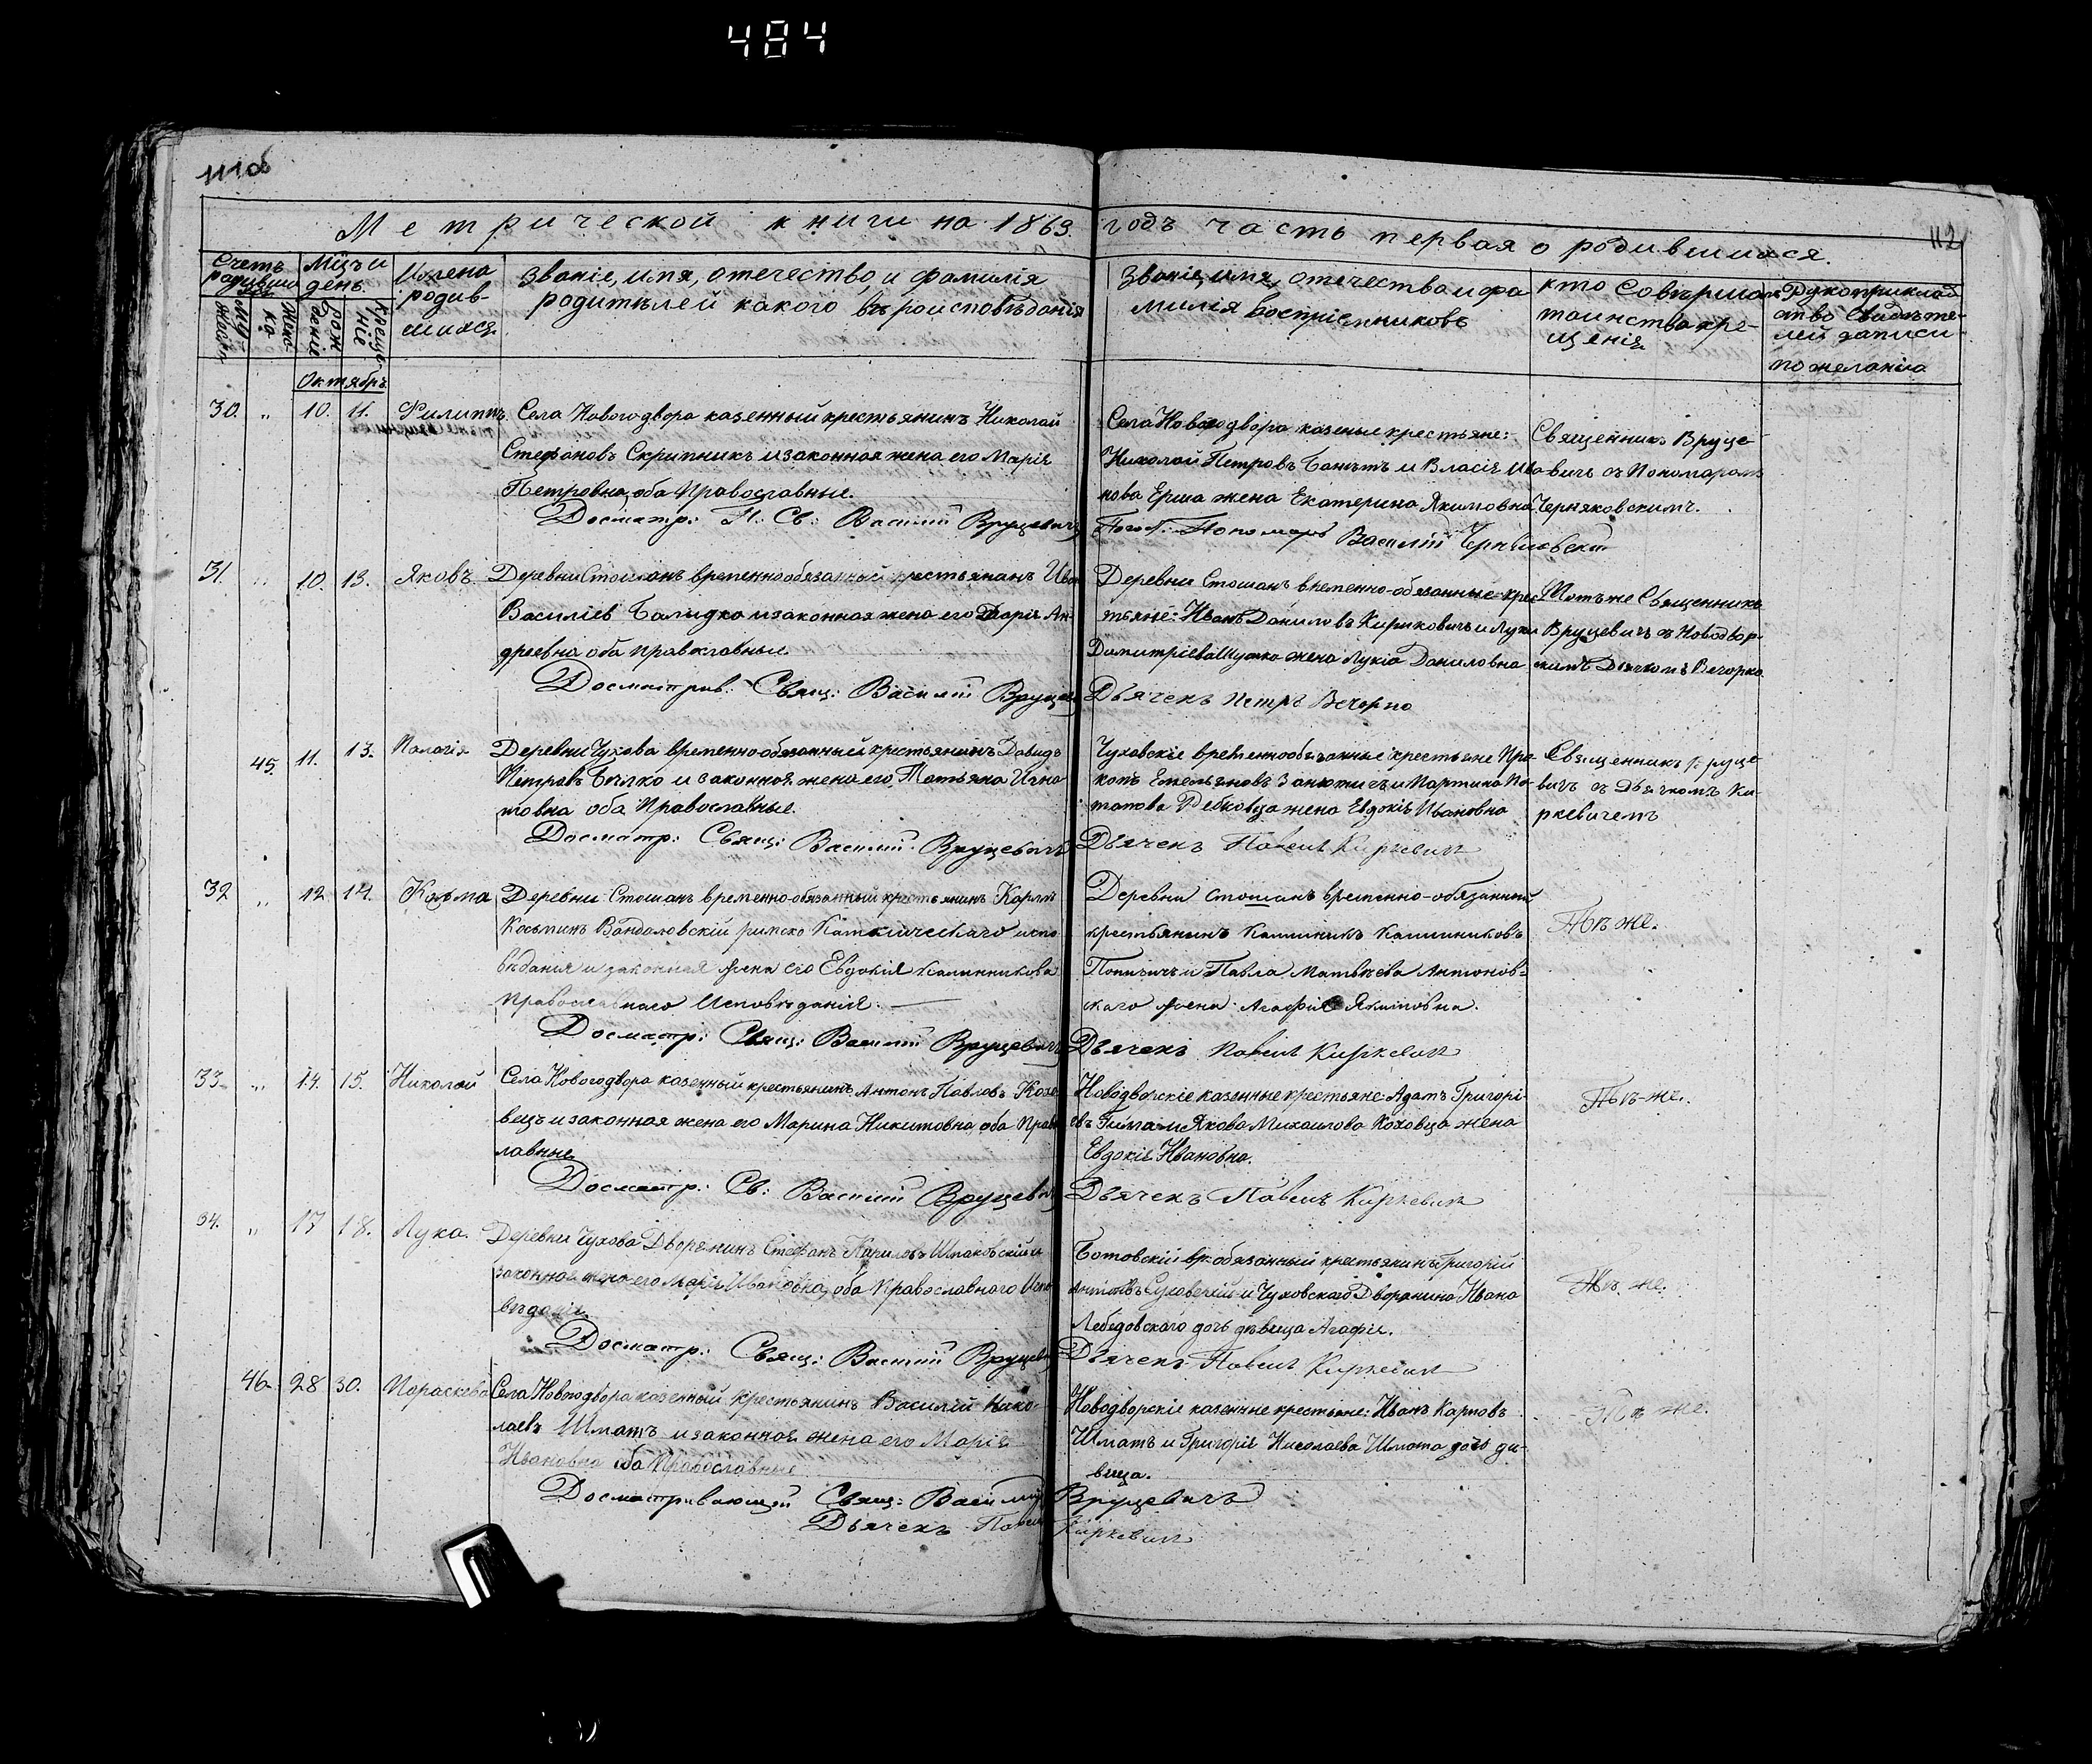 484
111об
112
Метрической книги на 1863. годъ часть первая о родившихся.
Счетъ родивших
Мцъ и день
Имена родив-
шихся
Званіе, имя, отечество, и фамилія
родителей какого въроисповъданія
Званіе, имя, отечество и фа
милія воспріемниковъ
кто совършалъ
таинство кре-
щенія
Рукоприклад
ство свидъте-
лей записи
по желанію
рожденіе
крещеніе
Октябрь
30. " 10. 11. Филиппъ. Села Новогодвора казенный крестьянинъ Николай
Стефановъ Скрипникъ и законная жена его Марія
Петровна, оба Православные.
Досматр: П: Св: Василій Вруцевичъ
Села Новогодвора казеные крестьяне:
Николай Петровъ и Власія Ива
нова Ерша жена Екатерина Якимовна
Пономарь Василій Черняковскій
Священникъ Вруце
вичъ съ Пономаромъ
Черняковскимъ.
31. " 10. 13. Яковъ Деревни Стошанъ временнообязанный крестьянинъ Иван
Василіев и законная жена его Дарія Ан-
дреевна оба православные
Досматрив: Свящ: Василій Вруцев
Деревни Стошанъ временно-обязанные крес
тьяне: Иванъ Даниловъ Кириковичъ и Луки
Димитріева жена Лукіа Даниловна
Дьячекъ Петръ Вечорко
Тотъ же Священникъ
Вруцевичъ съ Новодвор-
скимъ Дьячкомъ Вечорко
45. 11. 13. Палагія Деревни Чухова временно-обязанный крестьянинъ Давидъ
Петровъ и законная жена его Татьяна Игна
товна оба Православные.
Досматр: Свящ: Василій Вруцевичъ
Чуховскіе временнообязанные крестьяне Про-
копъ Емельяновъ и Мартина По-
тапова жена Евдокія Ивановна
Дьячекъ Павелъ Киркевич
Священникъ Вруце-
вичъ съ Дьячкомъ Ки-
ркевичемъ
32 " 12 14. Козьма Деревни Стошанъ временно-обязанный крестьянинъ Карлъ
Косьминъ Вандаловскій римско Католическаго испо
въданія и законная жена его Евдокія Калинникова
Православнаго Исповъданія.
Досматр: Свящ: Василій Вруцевичъ
Деревни Стошанъ временно-обязанный
крестьянинъ Калиникъ Калиниковъ
и Павла Матвъева Антонов-
скаго жена Агафія Якимовна.
Дьячекъ Павелъ Киркевич
Тъ же.
33 " 14. 15. Николай Села Новогодвора казенный крестьянинъ Антонъ Павловъ Кохо
вецъ и законная жена его Марина Никитовна, оба Право
лавные
Досматр: Св: Василій Вруцевич
Новодворскіе казенные крестьяне: Адамъ Григорі-
евъ и Якова Михаилова Коховца жена
Евдокія Ивановна.
Дьячекъ Павелъ Киркевич
Тъ-же.
34. " 17 18. Лука. Деревни Чухова Дворянинъ Стефанъ Кириловъ Шпаковскій и
законная жена его Марія Ивановна, оба Православного Испо
въданія
Досматр: Свящ: Василій Вруцев
Ботовскій вр. обязанный крестьянинъ Григорій
Антоновъ и Чуховскаго Дворянина Ивана
Лебедовскаго дочь дъвица Агафія.
Дьячекъ Павелъ Киркевич
Тъ же.
46. 28 30. Параскева Села Новогодвора казенный крестьянинъ Василій Нико-
лаевъ Шматъ и законная жена его Марія
Ивановна оба Православные
Досматривающій Свящ: Василій Вруцевичъ
Дьячекъ Павелъ Киркевич
Новодворскіе казенные крестьяне: Иванъ Карповъ
Шматъ и Григорія Николаева Шмата дочь дъ-
вица.
Тъ же.